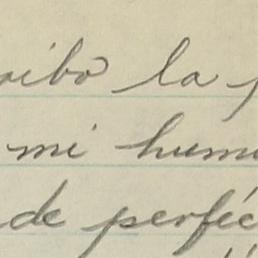 cibo la
mi hum
de perfec